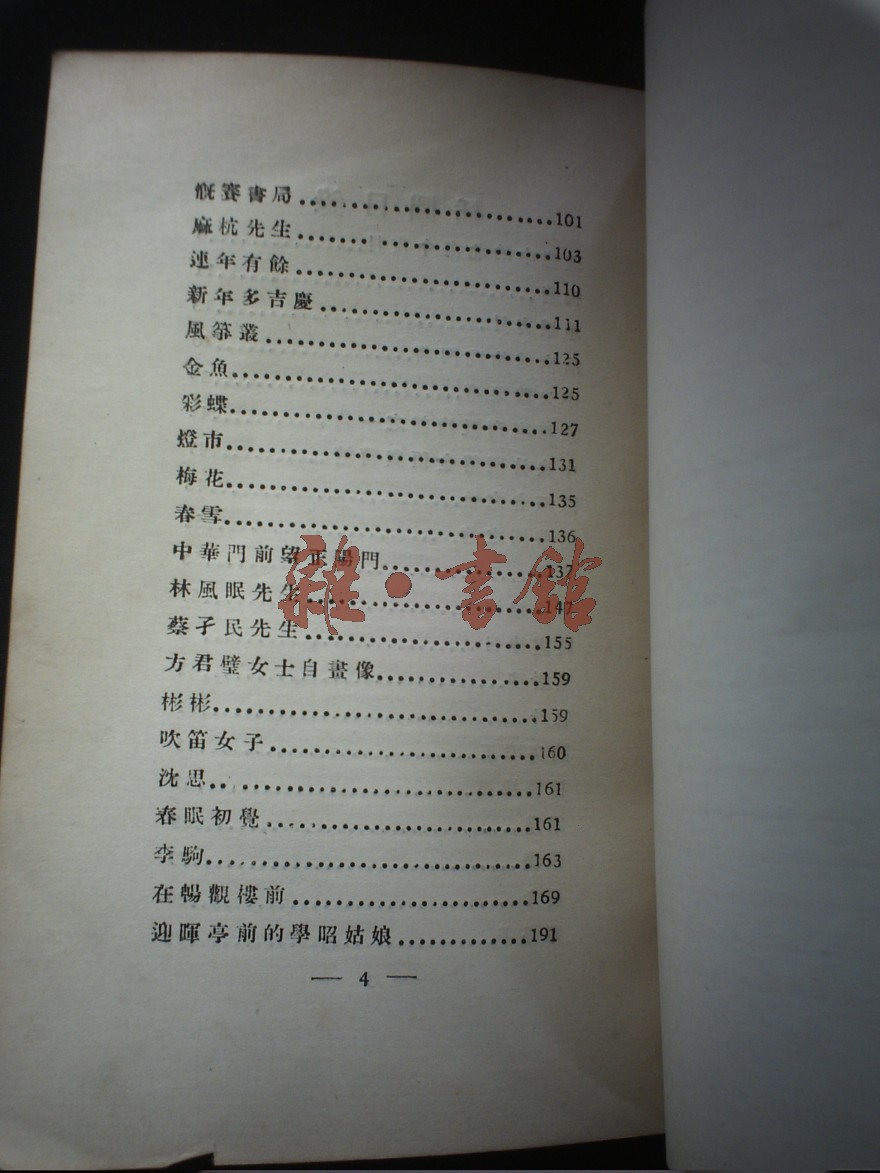 慨賽書局……101
麻杭先生……103
連年有餘……110
新年多吉慶……111
風箏叢……125
金魚……125
彩蝶……127
燈市……131
梅花……135
春雪……136
中華門前望正陽門……137
林風眠先生……
蔡孑民先生……155
方君璧女士自畫像……159
彬彬……159
吹笛女子……160
沈思……161
春眠初覺……161
李駒……163
在暢觀樓前……169
迎暉亭前的學昭姑娘……191
— 4 —
雜·書館